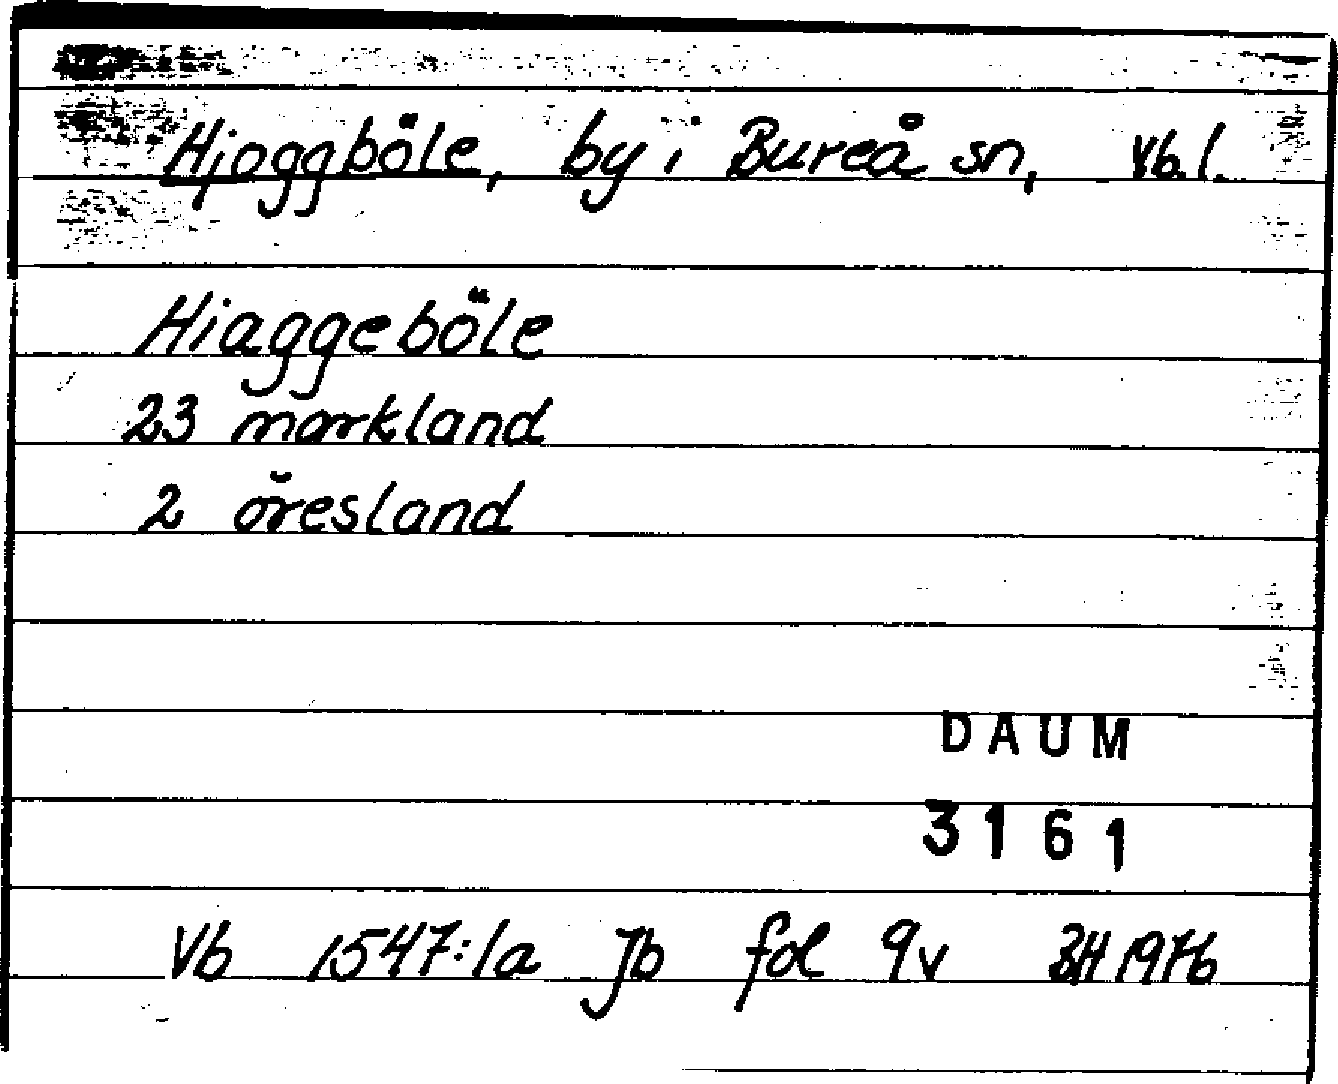 Hjoggböle, by i Bureå sn, Vb.l.
Hiaggeböle
23 markland
2 öresland
DAUM
3161
Vb 1547:1a Jb fol 9v BH 1976